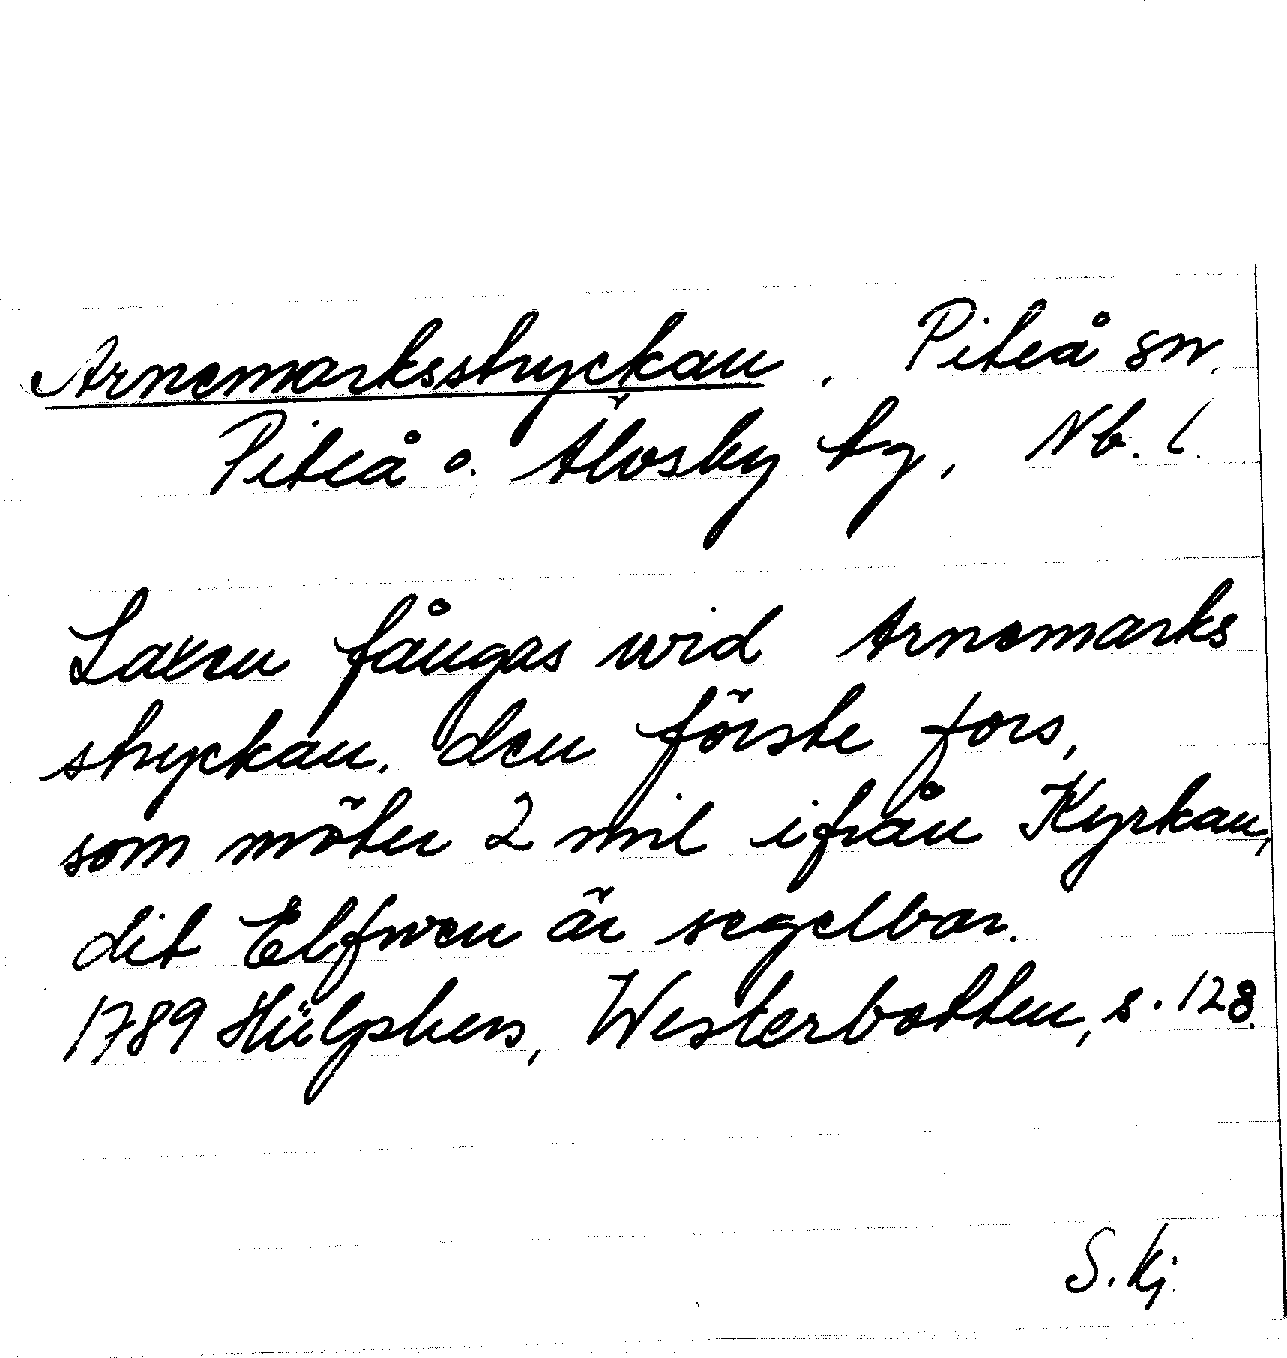 Arnemarksstryckan. Piteå sn.
Piteå o. Älvsby tg, Nb. l.
Laxen fångas wid Arnemarks
stryckan, den förste fors,
som möter 2 mil ifrån Kyrkan,
dit Elfwen är segelbar.
1789 Hülphers, Westerbotten, s. 128.
S. Kj.